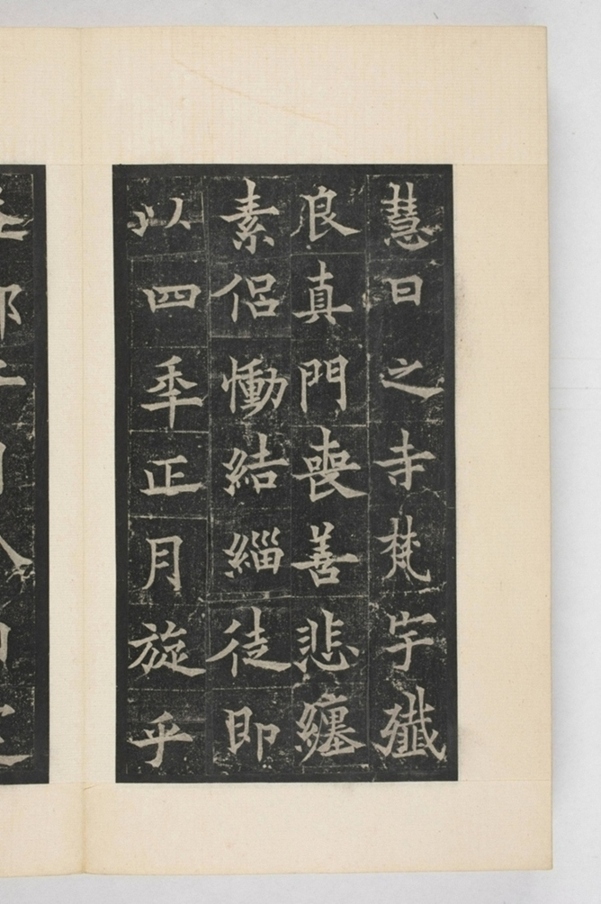 慧日之寺梵宇殱
良真門喪善悲纏
素侣慟結緇徒即
以四年正月旋乎